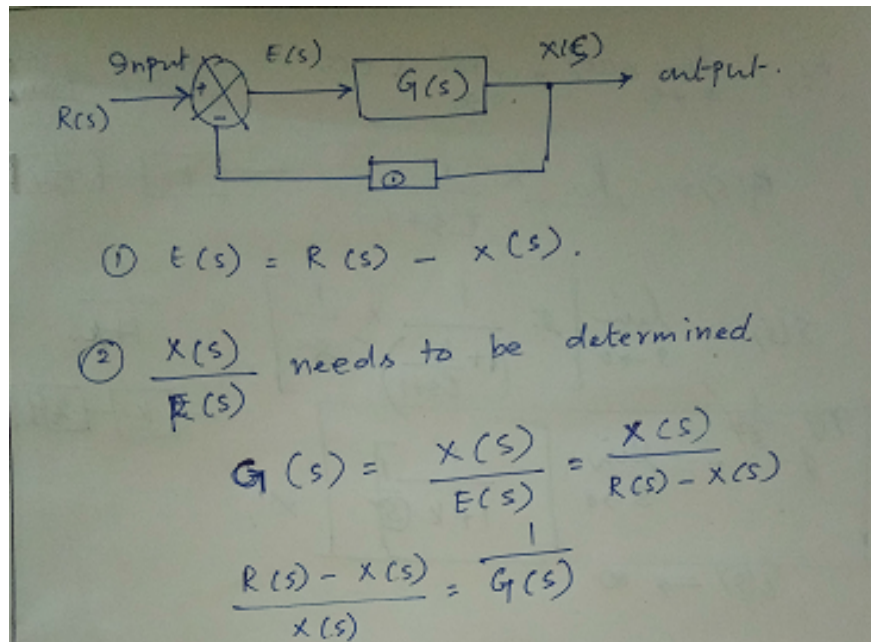 Input E(s) X(s)
R(s) + G(s) output.
-
①
① E(s) = R(s) - X(s).
② X(s)/E(s) needs to be determined.
G(s) = X(s)/E(s) = X(s)/R(s) - X(s)
R(s) - X(s)/X(s) = 1/G(s)